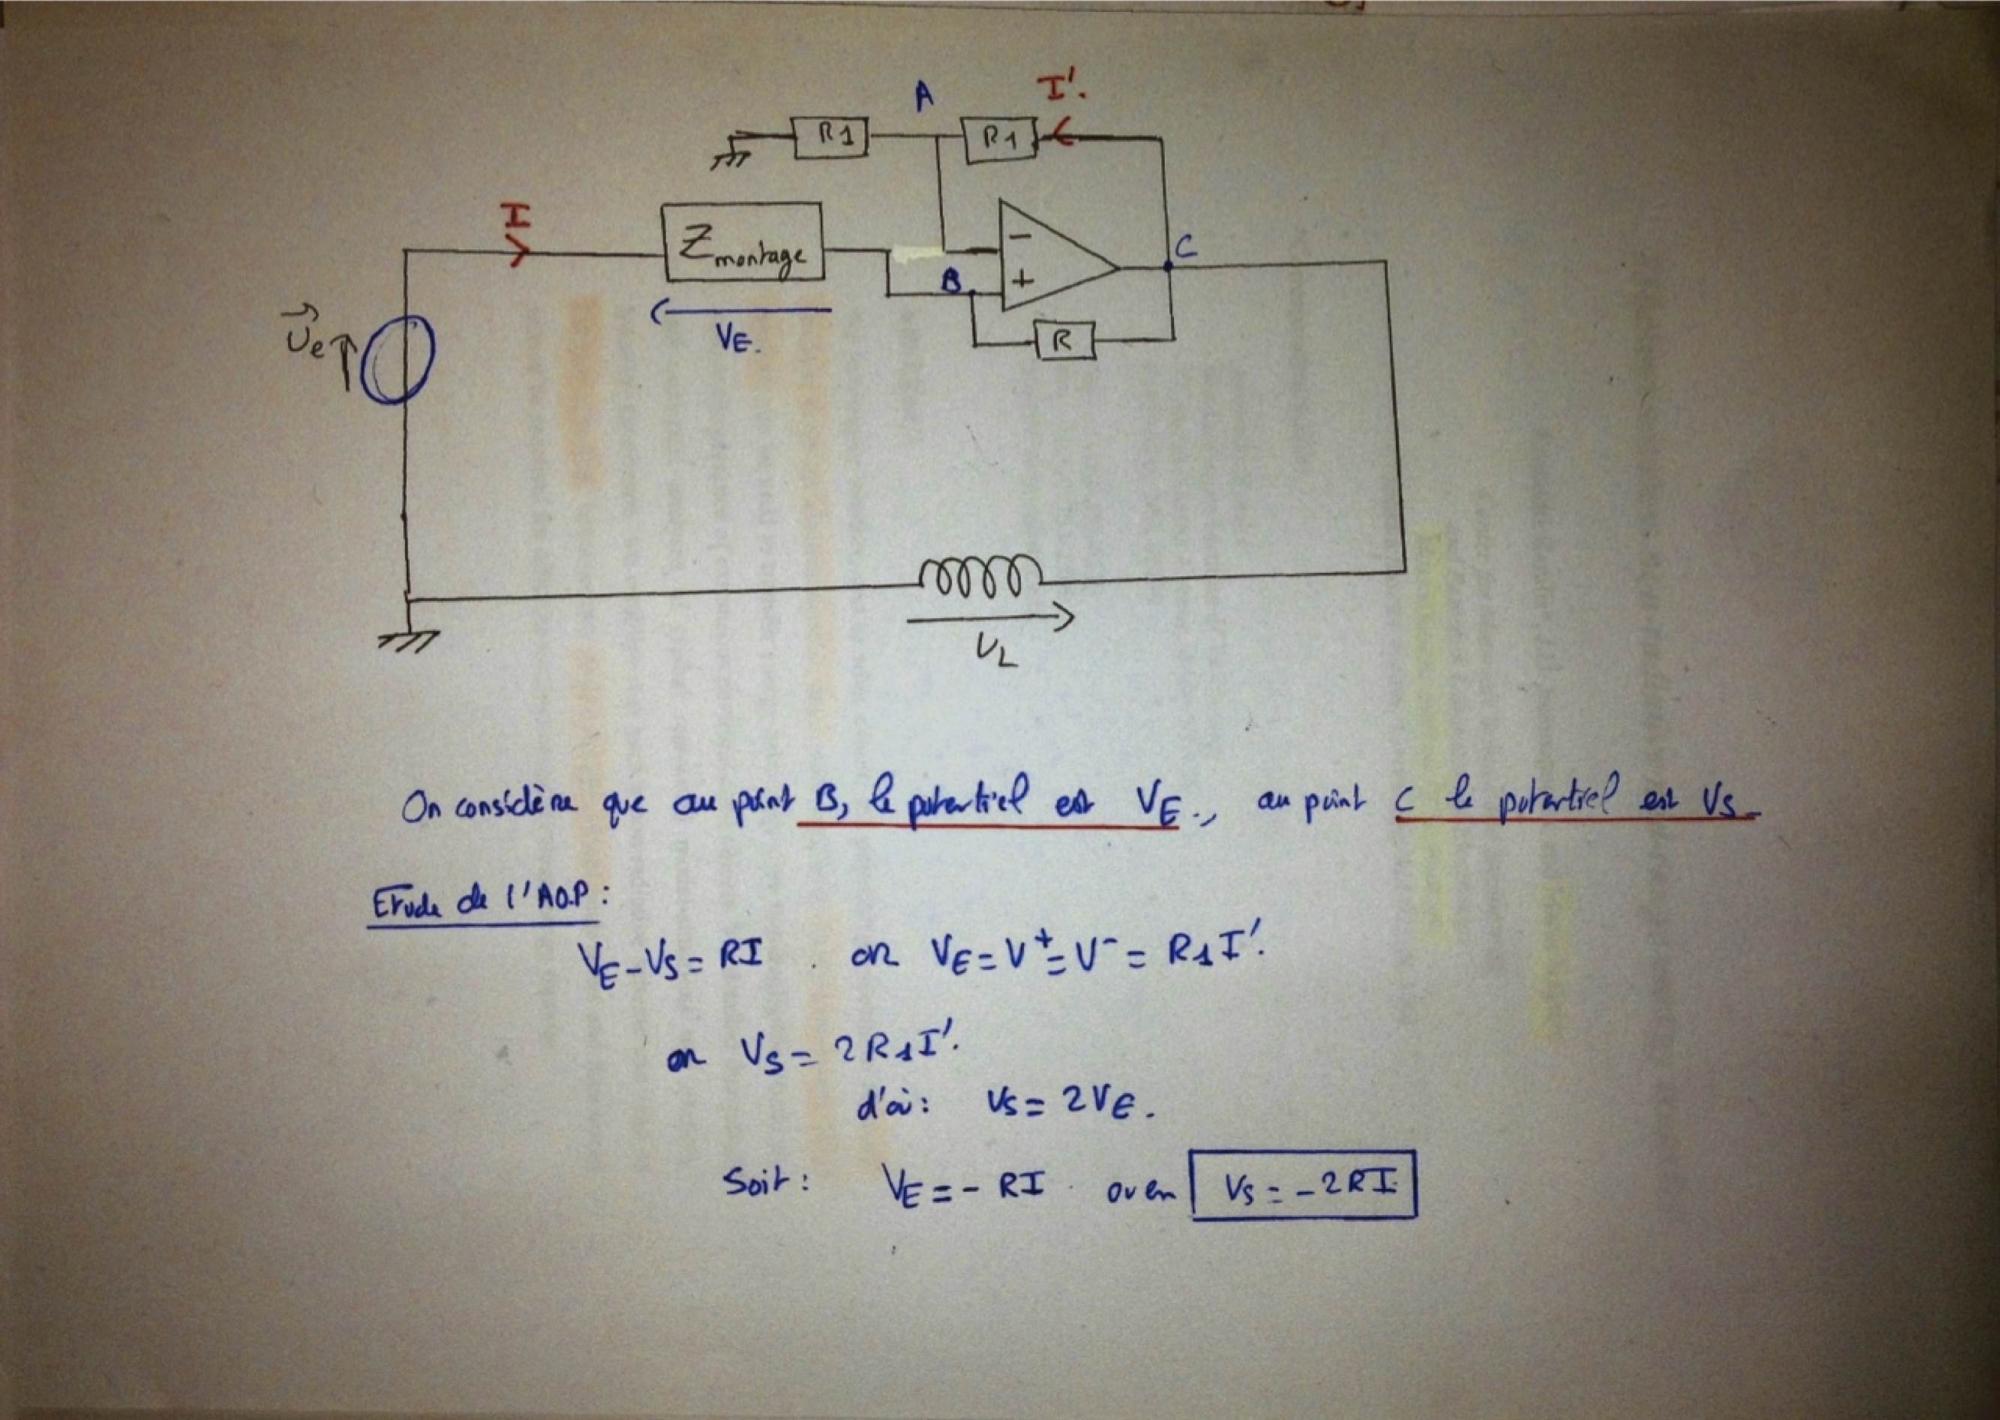 A
I'.
R1
R1
I
Z montage
−
+
B
C
VE.
R
Ue
UL
On considère que au point B, le potentiel est VE., au point C le potentiel est VS
Etude de l'AOP:
VE-VS = RI . or VE = V+ = V- = R1I'.
or VS = 2R1I'.
d'où: VS = 2VE.
Soit: VE = - RI ou en VS = -2RI